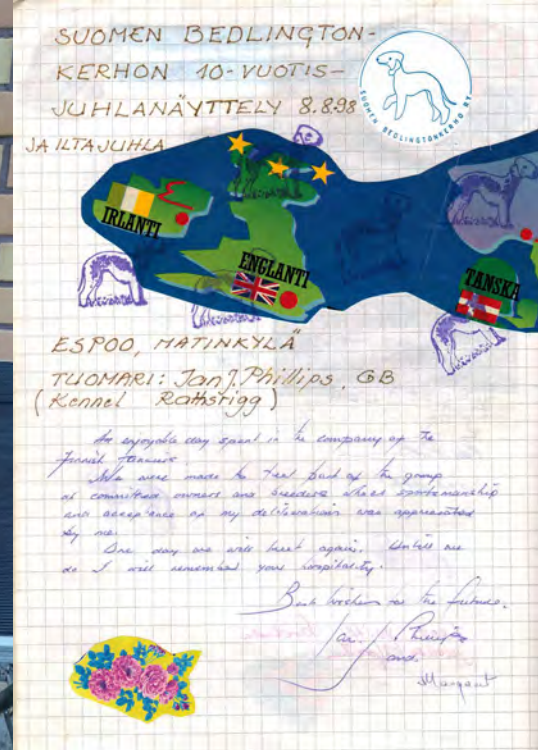 SUOMEN BEDLINGTON-
KERHON 10-VUOTIS-
JUHLANÄYTTELY 8.8.98
JA ILTAJUHLA
SUOMEN BEDLINGTONKERHO RY
IRLANTI
ENGLANTI
TANSKA
ESPOO, MATINKYLÄ
TUOMARI: Jan J. Phillips, GB
(Kennel Rathstrigg)
An enjoyable day spent in the company of the
Finnish
We were made to feel part of the group
of committed owners and breeders whose sportsmanship
and acceptance of my deliberations was appreciated
by me.
One day we will meet again. Untill we
do I will remember your hospitality.
Best wishes for the future.
Ian J Phillips
and
Margaret